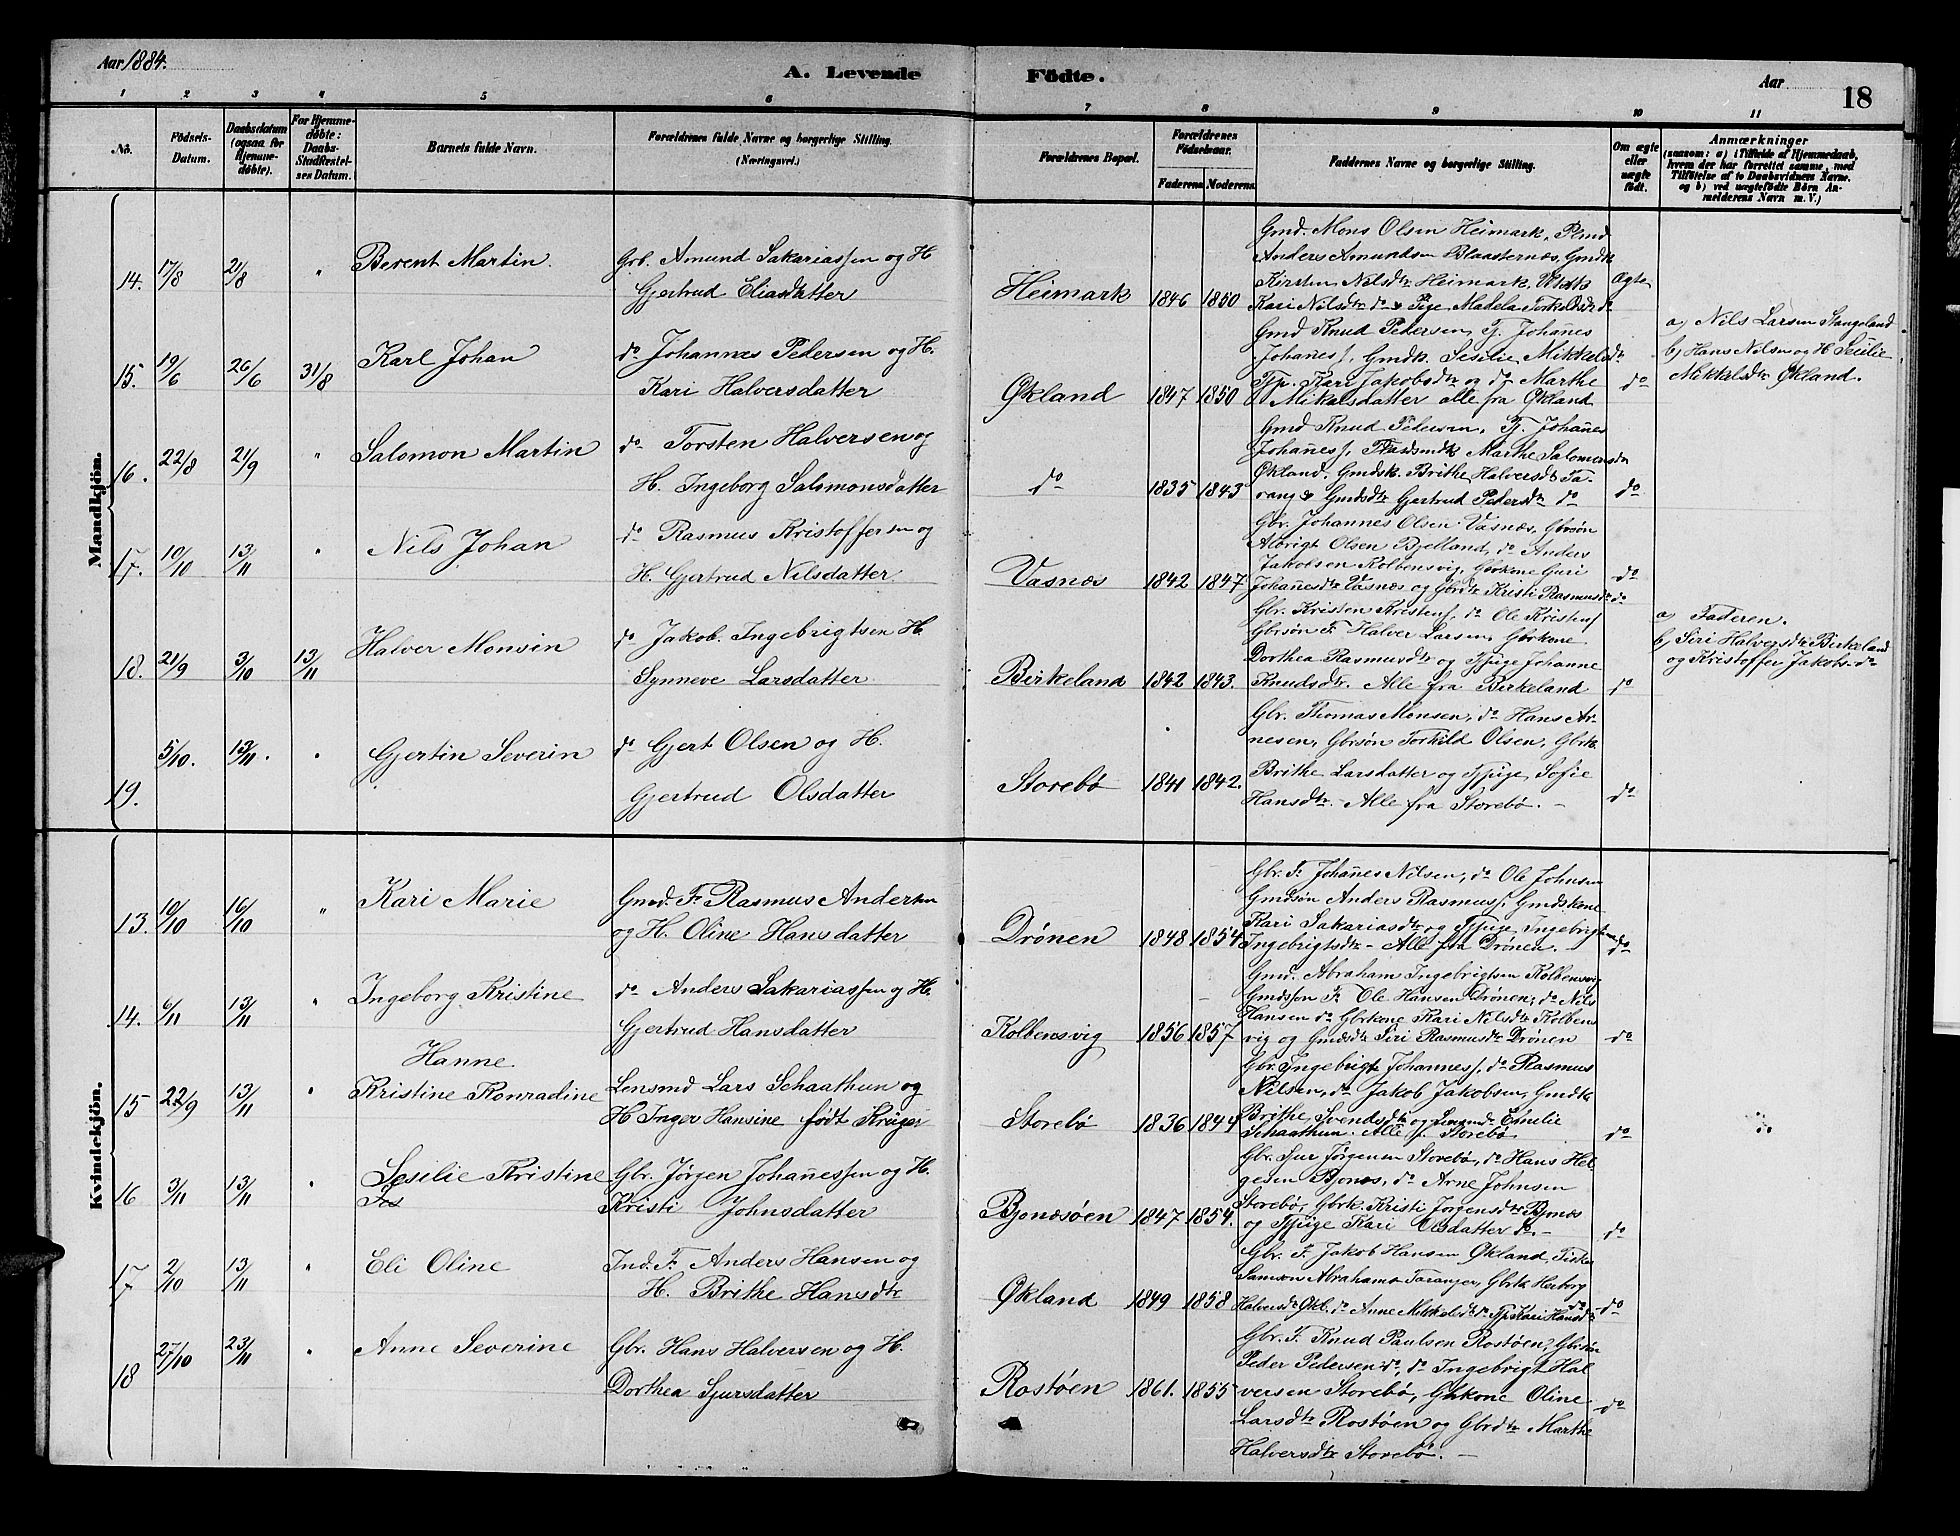 Aar 1884.
A. Levende Födte.
Aar
18
1 2 3 4 5 6 7 8 9 10 11
No.
Födsels-Datum.
Daabsdatum (ogsaa for Hjemmedøbte).
For Hjemmedøbte: Daabs-Stadfæstelses Datum.
Barnets fulde Navn.
Forældrenes fulde Navne og borgerlige Stilling. (Næringsvei.)
Forældrenes Bopæl.
Forældrenes Födselsaar.
Faderens Moderens
Faddernes Navne og borgerlige Stilling.
Om ægte eller uægte født.
Anmærkninger
(saasom: a) i Tilfælde af Hjemmedaab, hvem der har forrettet samme, med Tilføielse af to Daabsvidners Navne. og b) ved uægtefødte Børn Anmelderens Navn m. V.)
Mandkjön.
14. 17/8 21/8 " Berent Martin.
Grb. Amund Sakariassen og H
Gjertrud Eliasdatter
Heimark 1846 1850
Gmd. Mons Olsen Heimark, Plmd
Anders Amundsen Blaasternæs, Gmdk
Kirsten Nilsdtr Heimark,
Kari Nilsdtr do Pige Madela Torkelsdtr do
Ægte
15. 19/6 26/6 31/8 Karl Johan
do Johannes Pedersen og H.
Kari Halversdatter
Økland 1847 1850
Gmd Knud Pedersen, Tj. Johanes
Johanes f. Gmdk. Sesilie Mikkelsdtr
Tjp. Kari Jakobsdtr og do Marthe
Mikalsdatter alle fra Økland
do
a) Nils Larsen Stangeland
b) Hans Nilsen og H Secilie
Mikkelsdtr Økland.
16. 22/8 21/9 " Salomon Martin
do Torsten Halversen og
H. Ingeborg Salomonsdatter
do 1835 1843
Gmd Knud Pedersen, Tj. Johanes
Johanes f, Marthe Salomonsdtr
Økland. Gmdsk. Brithe Halversdtr Ta-
rang Gmdsdtr Gjertrud Pedersdtr do
do
17. 10/10 13/11 " Nils Johan
do Rasmus Kristoffersen og
H. Gjertrud Nilsdatter
Vasnæs 1842 1847
Gbr. Johannes Olsen Vasnæs, Gbrsøn
Albrigt Olsen Bjelland, do Anders
Jakobsen Kolbensvig, Gbrkone Guri
Johanesdtr Vasnæs og Gbrdtr Kristi Rasmusdtr do
do
18. 21/9 3/10 13/11 Halver Monsin
do Jakob Ingebrigtsen H.
Synneve Larsdatter
Birkeland 1842 1843.
Gbr. Kristen Kristens f, do Ole Kristens f
Gbrsön F. Halver Larsen, Gbrkone
Dorthea Rasmusdtr og Tjpige Johanne
Knudsdtr. Alle fra Birkeland
do
a) Faderen.
b) Siri Halversdtr Birkeland
og Kristoffer Jakobs- do
19. 5/10. 13/11. " Gjertin Severin
do Gjert Olsen og H.
Gjertrud Olsdatter
Storebø 1841 1842.
Gbr. Thomas Monsen, do Hans Ar-
nesen, Gbrsön Torkild Olsen, Gbrk.
Brithe Larsdatter og Tjpige Sofie
Hansdtr. - Alle fra Storebø. -
do
Kvindekjön.
13. 10/10 16/10 " Kari Marie
Gmd. F. Rasmus Andersen
og H. Oline Hansdatter
Drönen 1848 1854
Gbr. F. Johanes Nilsen, do Ole Johnsen
Gmdsøn Anders Rasmus f, Gmdskone
Kari Sakariasdtr og Tjpige
Ingebrigtsdtr - Alle fra Drönen.
do
14. 6/11 13/11 " Ingeborg Kristine
do Anders Sakariassen og H.
Gjertrud Hansdatter
Kolbensvig 1856 1857
Gmd. Abraham Ingebrigtsen Kolbensvig
Gmdssøn F. Ole Hansen Drönen, do Nils
Hansen do Gbrkone Kari Nilsdtr Kolbens
vig og Gmdsdtr Siri Rasmusdtr Drönen
do
Hanne
15 22/9 13/11 " Kristine Konradine
Lensmd Lars Schaathun og
H. Inger Hansine født Krüger
Storebø 1836 1844
Gbr. Ingebrigt Johannes f, do Rasmus
Nilsen, do Jakob Jakobsen, Gmdk
Brithe Svendsdtr og Emelie
Schaathun. Alle f. Storebø
do
16 3/11 13/11 " Sesilie Kristine
Gbr. Jørgen Johanessen og H.
Kristi Johnsdatter
Bjonæsöen 1847 1854.
Gbr. Sjur Jørgensen Storebø, do Hans Hel-
gesen Bjonæs, do Arne Johnsen
Storebø, Gbrk. Kristi Jörgensdtr Bjonæs
og Tjpige Kari Olsdatter do. -
do
17 2/10 13/11 " Eli Oline
Ind. F. Anders Hansen og
H. Brithe Hansdtr
Økland 1849 1858
Gbr. F. Jakob Hansen Økland, Fisker
Samson Abrahams Taranger, Gbrk Herborg
Halversdtr Økl. do Anne Mikkelsdtr do Tjp Kari Hansdtr do
do
18 27/10 23/11 " Anne Severine
Gbr. Hans Halversen og H.
Dorthea Sjursdatter
Rostøen 1861. 1855
Gbr. F. Knud Paulsen Rostøen, Gbrsøn
Peder Pedersen do, do Ingebrigt Hal
versen Storebø, Gbrkone Oline
Larsdtr Rostøen og Gbrdtr Marthe
Halversdtr Storebø. -
do